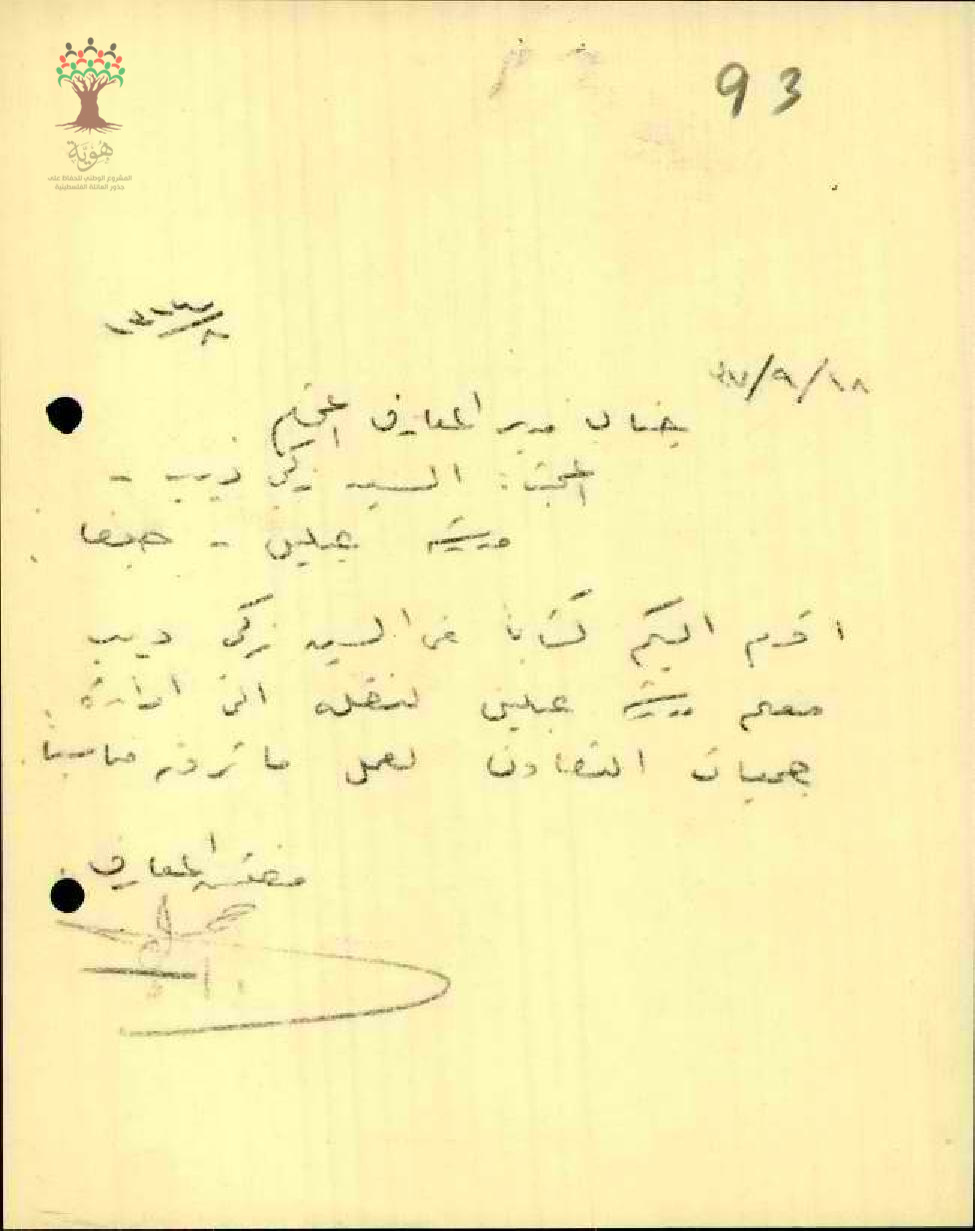 93
هُوِيَّة
المشروع الوطني للحفاظ على
جذور العائلة الفلسطينية
٤٧/٩/١٨
جناب مدير المعارف المحترم
المبحث: السيد زكي ذيب -
مدرسة عبلين - حيفا
اقدم اليكم كتابا من السيد زكي ديب
معلم مدرسة عبلين لنقله الى ادارة
جمعيات التعاون لعمل ما ترونه مناسبا
مفتش المعارف